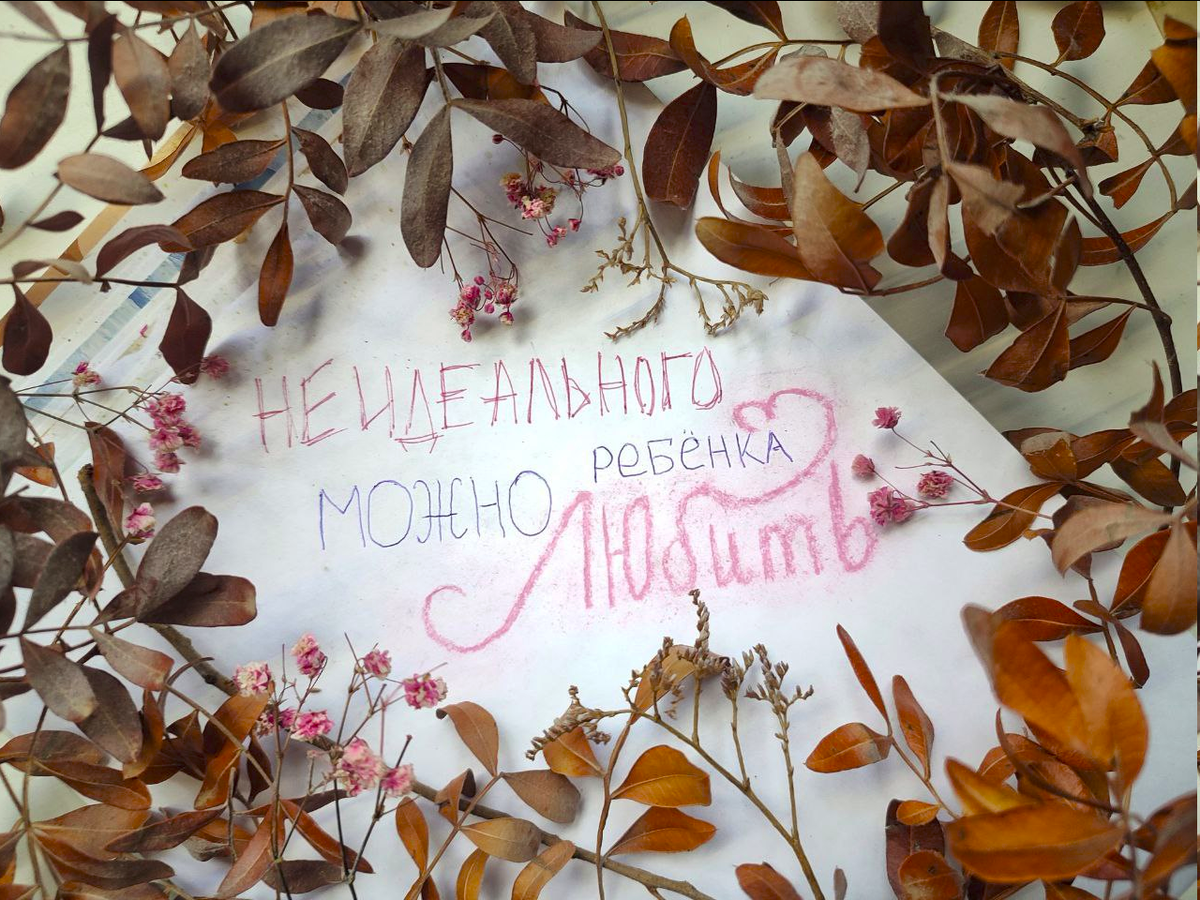 НЕИДЕАЛЬНОГО
РЕБЁНКА
МОЖНО
Любить